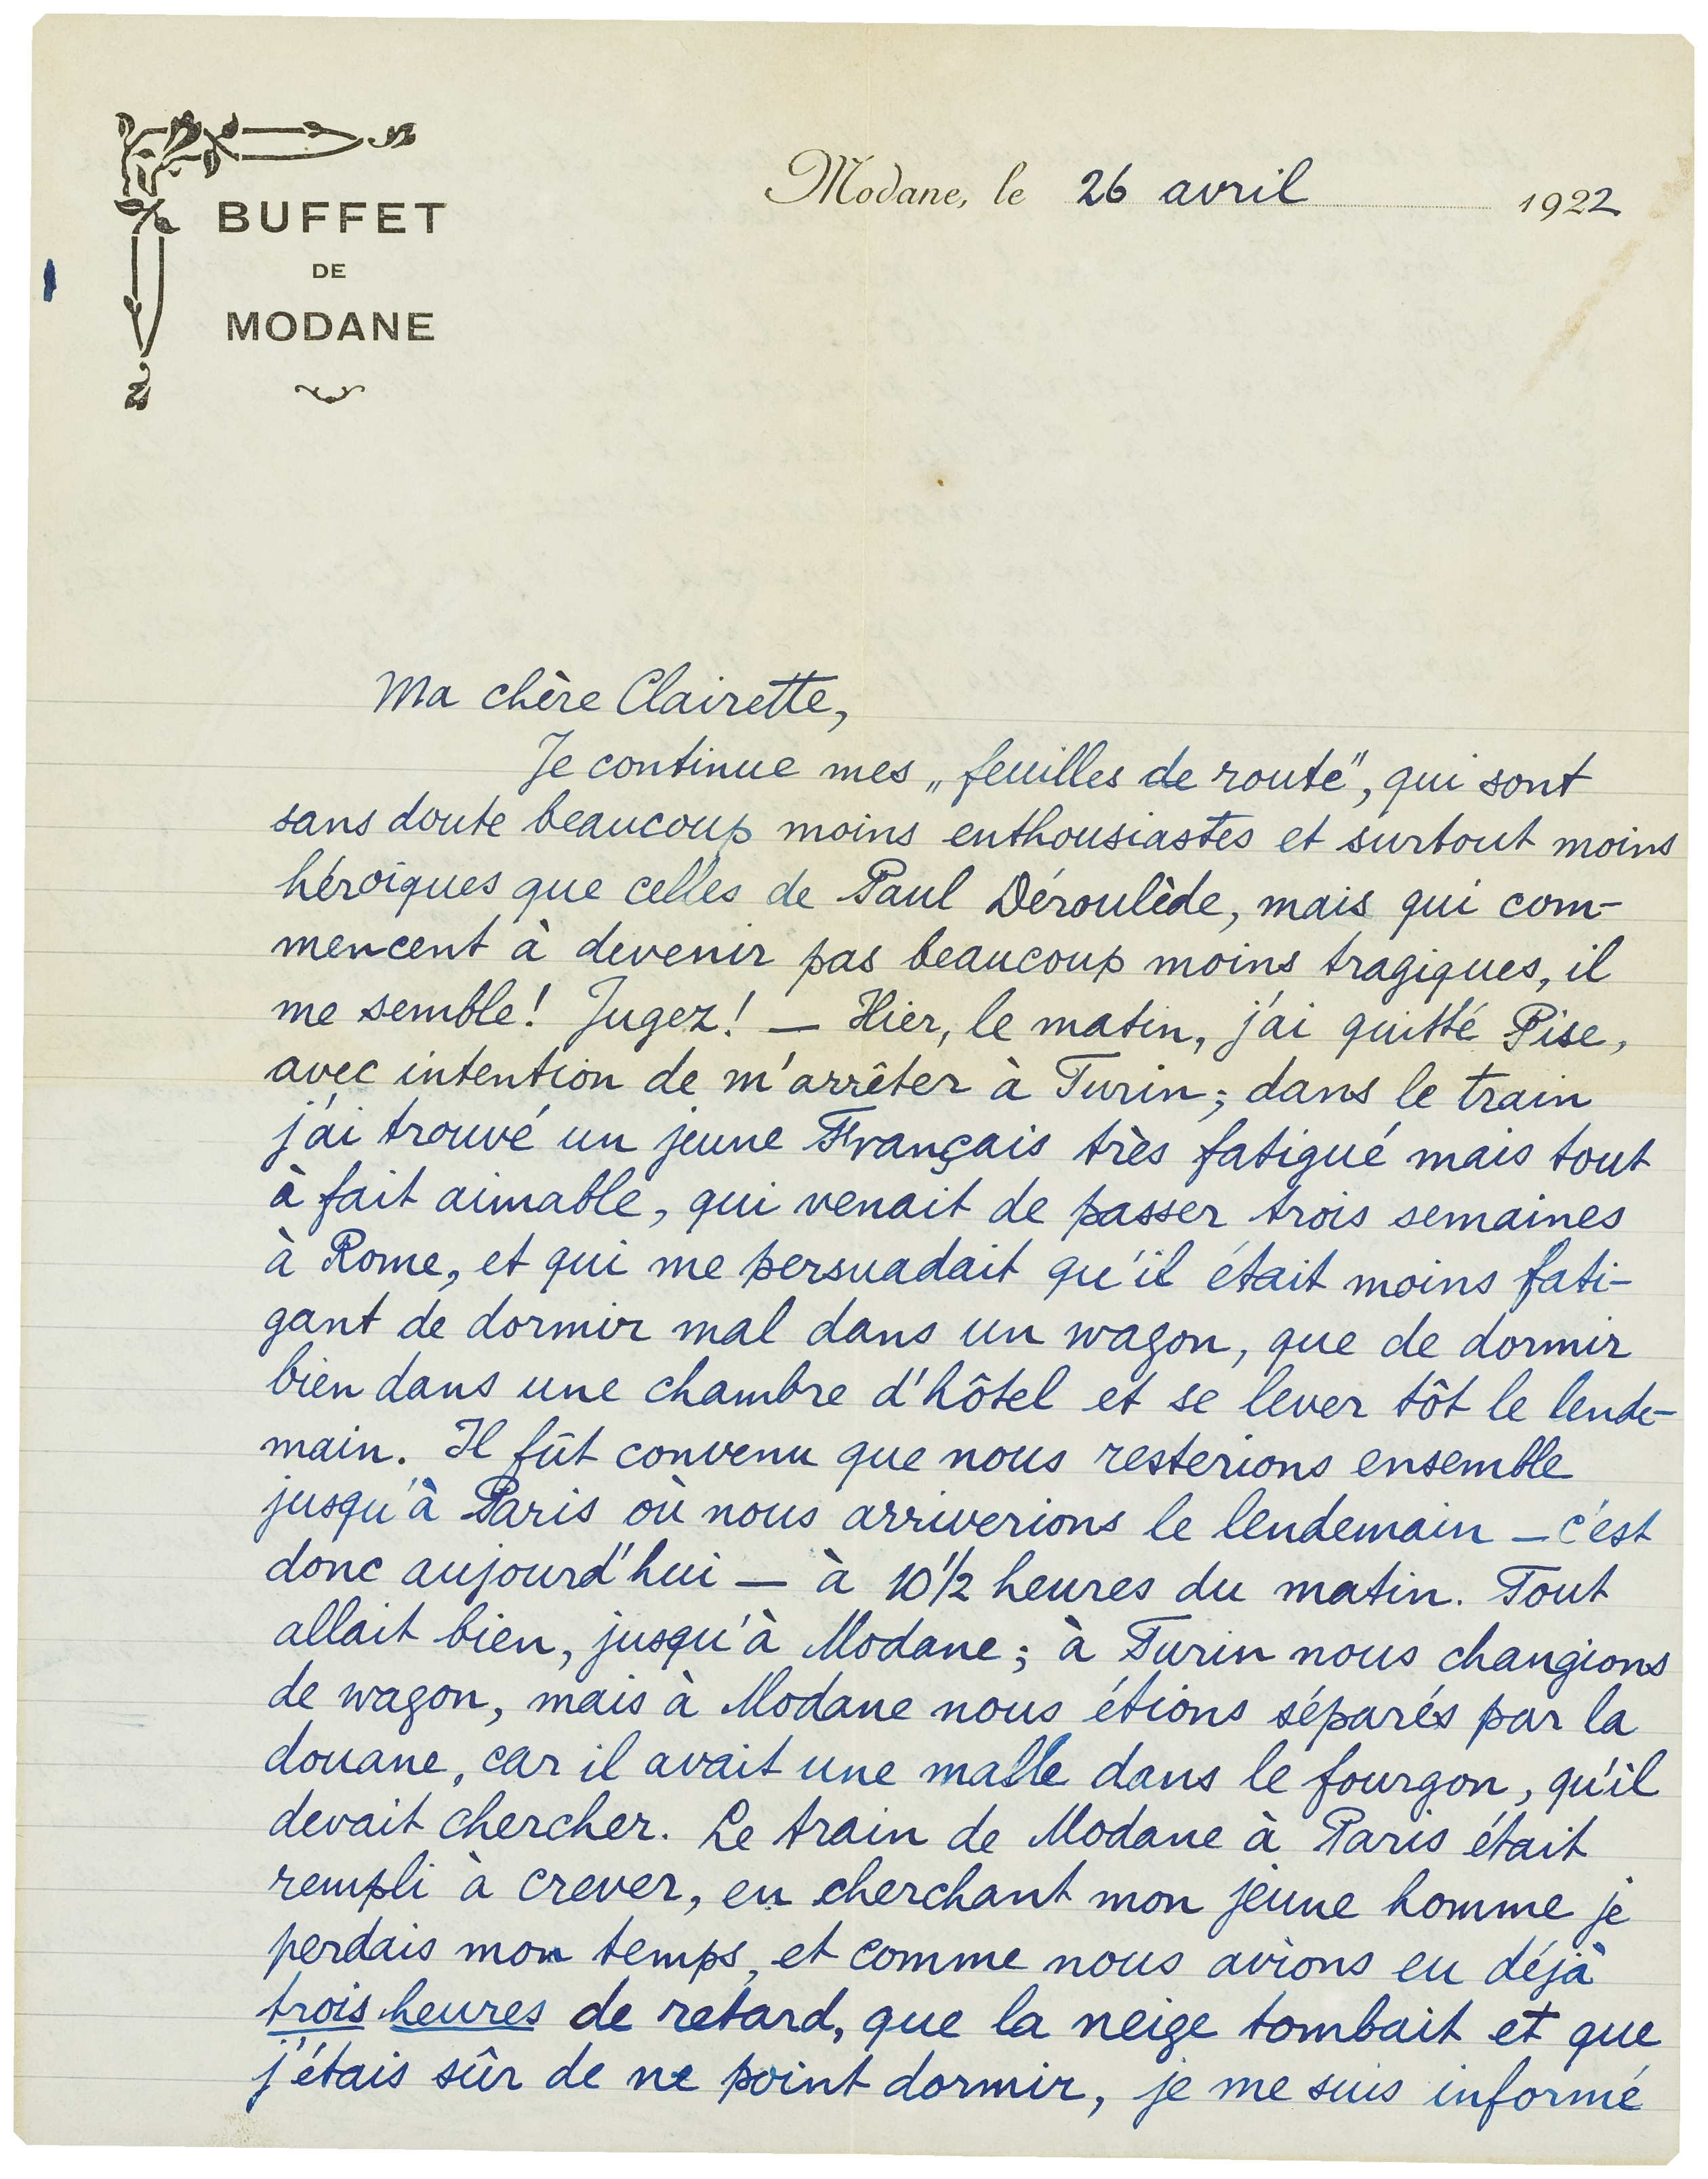 BUFFET
DE
MODANE
Modane, le 26 avril 1922
Ma chère Clairette,
Je continue mes „feuilles de route", qui sont
sans doute beaucoup moins enthousiastes et surtout moins
héroïques que celles de Paul Déroulède, mais qui com-
mencent à devenir pas beaucoup moins tragiques, il
me semble! Jugez! — Hier, le matin, j'ai quitté Pise,
avec intention de m'arrêter à Turin; dans le train
j'ai trouvé un jeune Français très fatigué mais tout
à fait aimable, qui venait de passer trois semaines
à Rome, et qui me persuadait qu'il était moins fati-
gant de dormir mal dans un wagon, que de dormir
bien dans une chambre d'hôtel et se lever tôt le lende-
main. Il fût convenu que nous resterions ensemble
jusqu'à Paris où nous arriverions le lendemain — c'est
donc aujourd'hui — à 10 1/2 heures du matin. Tout
allait bien, jusqu'à Modane; à Turin nous changions
de wagon, mais à Modane nous étions séparés par la
douane, car il avait une malle dans le fourgon, qu'il
devait chercher. Le train de Modane à Paris était
rempli à crever, en cherchant mon jeune homme je
perdais mon temps, et comme nous avions eu déjà
trois heures de retard, que la neige tombait et que
j'étais sûr de ne point dormir, je me suis informé